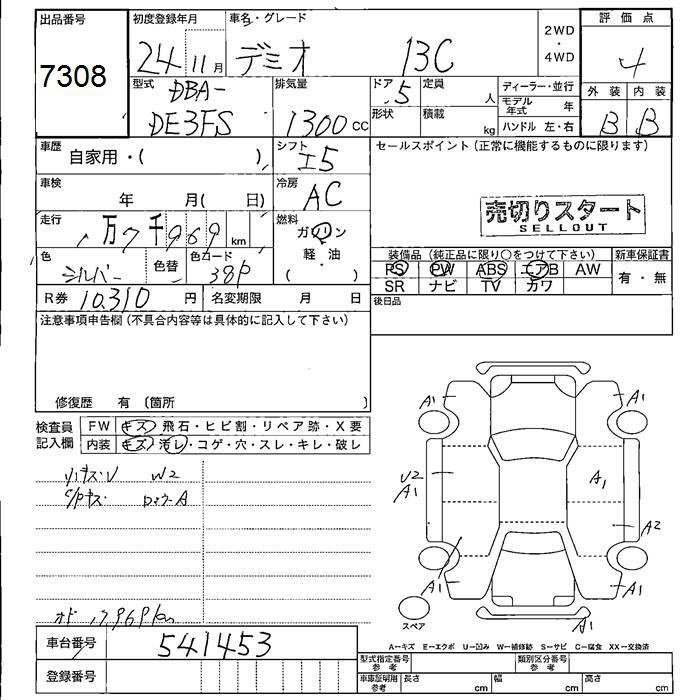 出品番号
7308
初度登録年月
24年11月
車名・グレード
デミオ 13C
2WD
・
4WD
評価点
4
型式
DBA-
DE3FS
排気量
1300cc
ドア
5
形状
定員
人
積載
kg
ディーラー・並行
モデル年式 年
ハンドル 左・右
外装 内装
B B
車歴
自家用・( )
シフト
I5
セールスポイント(正常に機能するものに限ります)
売切りスタート
SELLOUT
車検
年 月( 日)
冷房
AC
走行
1万7千969km
燃料
ガソリン
軽・油
( )
色
シルバー
色替
色コード
38P
装備品(純正品に限り〇をつけて下さい)
PS PW ABS エアB AW
SR ナビ TV カワ
新車保証書
有・無
R券 10,310円
名変期限 月 日
後日品
注意事項申告欄(不具合内容等は具体的に記入して下さい)
修復歴 有 (箇所 )
検査員
記入欄
FW キズ・飛石・ヒビ割・リペア跡・X要
内装 キズ・汚レ・コゲ・穴・スレ・キレ・破レ
W2
オド 17969km
A1 A1
U2
A1
A1
A2
A1 A1
A1
スペア
車台番号 541453
登録番号
A−キズ E−エクボ U−凹み W−補修跡 S−サビ C−腐食 XX−交換済
型式指定番号
参考
類別区分番号
参考
車庫証明用
参考
長さ cm 幅 cm 高さ cm